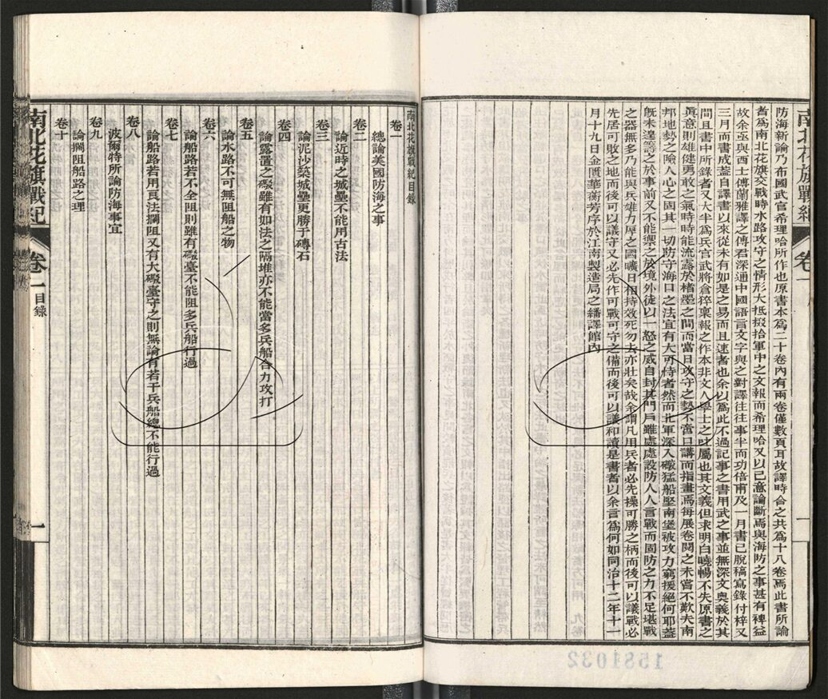 防海新論乃布國武官希理哈所作也原書本爲二十卷內有兩卷僅數頁耳故譯時合之共爲十八卷焉此書所論
者爲南北花旗交戰時水路攻守之情形大抵掇拾軍中之文報而希理哈又以己意論斷焉與海防之事甚有裨益
故余亟與西士傅蘭雅譯之傅君深通中國語言文字與之對譯往往事半而功倍甫及一月書已脫稿寫錄付梓又
三月而書成蓋自譯書以來從未有如是之易而且速者也余以爲此不過記事之書用武之事並無深文奧義於其
間且書中所錄者又大半爲兵官武將倉猝稟報之作本非文人學士之 屬也其文義但求明白曉暢不失原書之
眞意則雄健勇敢之氣時時能流露於楮墨之間而當日攻守之勢不啻口講而指畫焉每展卷閱之未嘗不歎夫南
邦地勢之險人心之固其一切防守海口之法宜有大可恃者然而北軍深入礮猛船堅南堡被攻力窮援絕何耶蓋
旣未達籌之於事前又不能禦之於境外徒以一怒之威自封其門戶雖處處設防人人言戰而固防之力不足堪戰
之器無多乃能與兵雄力厚之國曠日相持效死勿去亦壯矣哉余謂凡用兵者必先操可勝之柄而後可以議戰必
先居可敗之地而後可以議守又必先作可戰可守之備而後可以議和讀是書者以余言爲何如同治十二年十一
月十九日金匱華蘅芳序於江南製造局之繙譯館內
南北花旗戰紀
卷一
一
1581032
南北花旗戰紀目錄
卷一
總論美國防海之事
卷二
論近時之城壘不能用古法
卷三
論泥沙築城壘更勝于磚石
卷四
論露置之礮雖有如法之隔堆亦不能當多兵船合力攻打
卷五
論水路不可無阻船之物
卷六
論船路若不全阻則雖有礮臺不能阻多兵船行過
卷七
論船路若用頁注攔阻又有大礮臺守之則無論有若干兵船總不能行過
卷八
波爾特所論防海事宜
卷九
論攔阻船路之理
卷十
南北花旗戰紀
卷一
目錄
一